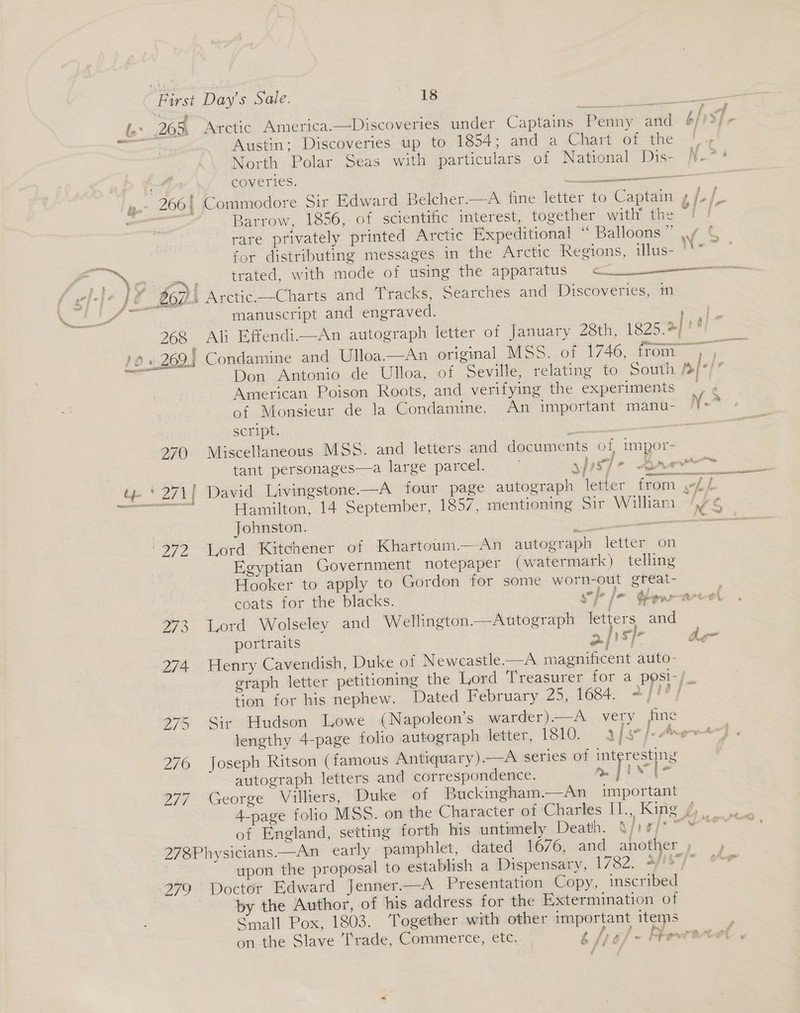 First Day's Sale. 18
265 Arctic America.—Discoveries under Captains Penny and
Austin; Discoveries up to 1854; and a Chart of the
North Polar Seas with particulars of National Dis-
coveries.
266 Commodore Sir Edward Belcher.—A fine letter to Captain
Barrow, 1856, of scientific interest, together with the
rare privately printed Arctic Expeditional “ Balloons ”
for distributing messages in the Arctic Regions, illus-
trated, with mode of using the apparatus
267 Arctic.—Charts and Tracks, Searches and Discoveries, in
manuscript and engraved.
268 Ali Effendi.—An autograph letter of January 28th, 1825.
269 Condamine and Ulloa.—An original MSS. of 1746, from
Don Antonio de Ulloa, of Seville, relating to South
American Poison Roots, and verifying the experiments
of Monsieur de la Condamine. An important manu-
script.
270 Miscellaneous MSS. and letters and documents of impor-
tant personages—a large parcel.
271 David Livingstone.—A four page autograph letter from
Hamilton, 14 September, 1857, mentioning Sir William
Johnston.
272 Lord Kitchener of Khartoum.—An autograph letter on
Egyptian Government notepaper (watermark) telling
Hooker to apply to Gordon for some worn-out great-
coats for the blacks.
273 Lord Wolseley and Wellington.—Autograph letters and
portraits
274 Henry Cavendish, Duke of Newcastle.—A magnificent auto-
graph letter petitioning the Lord Treasurer for a posi-
tion for his nephew. Dated February 25, 1684.
275 Sir Hudson Lowe (Napoleon's warder).—A very fine
lengthy 4-page folio autograph letter, 1810.
276 Joseph Ritson (famous Antiquary).—A series of interesting
autograph letters and correspondence.
277 George Villiers, Duke of Buckingham.—An important
4-page folio MSS. on the Character of Charles II., King
of England, setting forth his untimely Death.
278 Physicians.—An early pamphlet, dated 1676, and another
upon the proposal to establish a Dispensary, 1782.
279 Doctor Edward Jenner.—A Presentation Copy, inscribed
by the Author, of his address for the Extermination of
Small Pox, 1803. Together with other important items
on the Slave Trade, Commerce, etc.